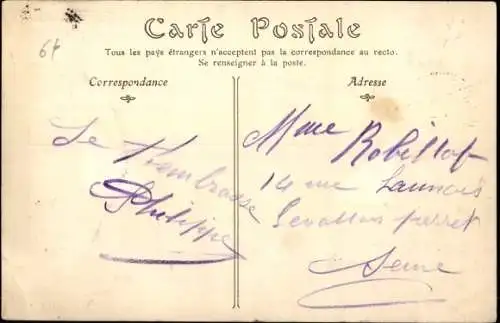 6f
Carte Postale
Tous les pays étrangers n'acceptent pas la correspondance au recto.
Se renseigner à la poste.
Correspondance
Adresse
Je t'embrasse
Philippe
Mme Robillot
14 rue Launois
Levallois perret
Seine